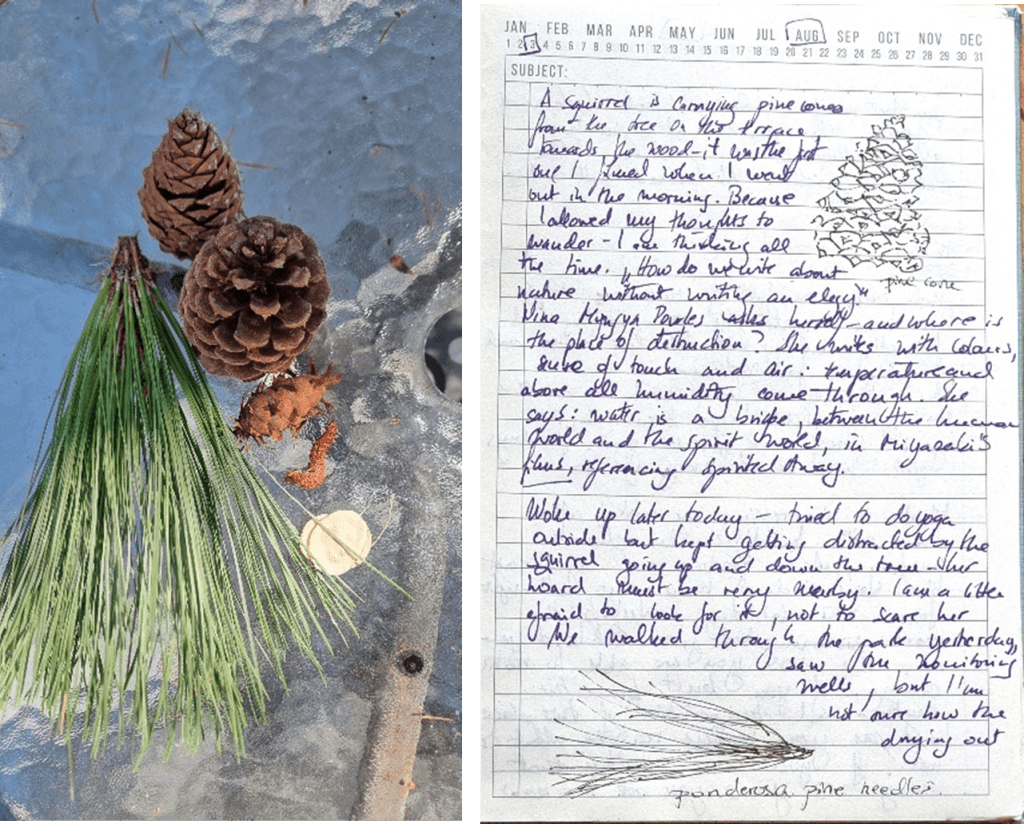 JAN FEB MAR APR MAY JUN JUL AUG SEP OCT NOV DEC
1 2 3 4 5 6 7 8 9 10 11 12 13 14 15 16 17 18 19 20 21 22 23 24 25 26 27 28 29 30 31
SUBJECT:
A squirrel is carrying pine cones
from the tree on the terrace
towards the wood - it was the first
one I found when I went
out in the morning. Because
I allowed my thoughts to
wander - I am thinking all
the time. "How do we write about
pine cone
nature without writing an elegy"
Nina Mingya Powles asks herself - and where is
the place of destruction? She writes with colours,
sense of touch and air: temperature and
above all humidity come through. She
says: water is a bridge, between the human
world and the spirit world, in Miyazaki's
films, referencing Spirited Away.
Woke up later today - tried to do yoga
outside but kept getting distracted by the
squirrel going up and down the tree - her
hoard must be very nearby. I am a little
afraid to look for it, not to scare her
We walked through the park yesterday,
saw the monitoring
wells, but I'm
not sure how the
drying out
ponderosa pine needles.